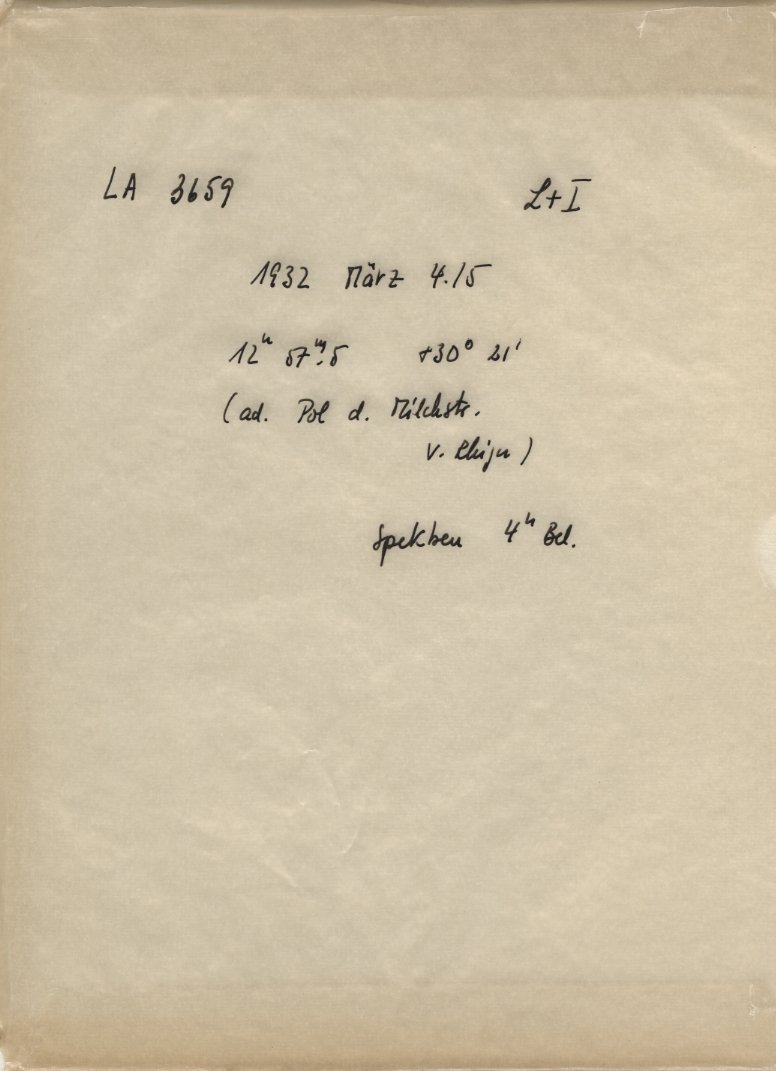 LA 3659 L+I
1932 März 4./5
12ʰ 57ᵐ.5 +30° 21'
(ad. Pol d. Milchstr.
v. Rhijn)
Spektren 4ʰ Bel.